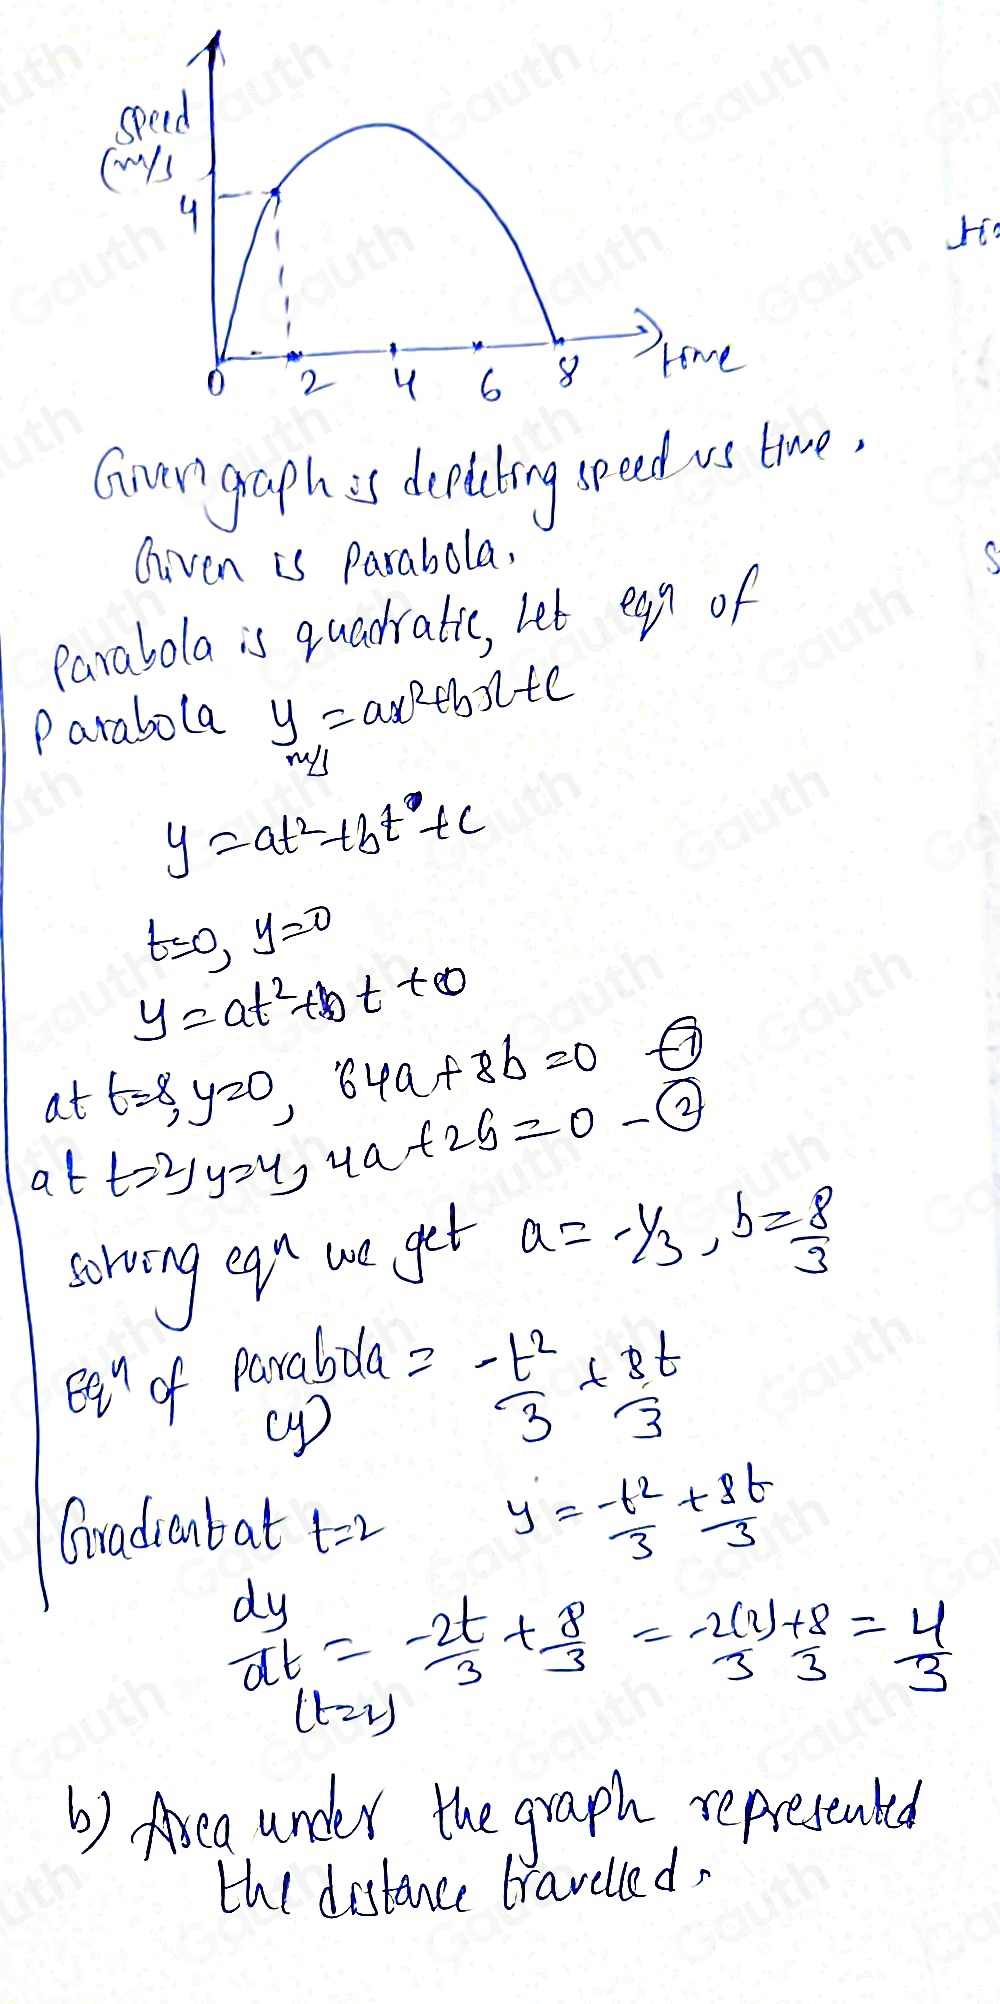 speed
(m/s
4
0 2 4 6 8 time
Given graph is depicting speed vs time.
Given is Parabola.
Parabola is quadratic, Let eqn of
Parabola y = ax²+bx+c
m/s
y = at²+bt+c
t=0, y=0
y = at²+bt+0
at t=8, y=0, 64a+8b=0 -①
at t=2, y=4, 4a+2b=0 -②
solving eqn we get a = -1/3, b = 8/3
Eqn of Parabola = -t²/3 + 8t/3
(y)
Gradient at t=2 y = -t²/3 + 8t/3
dy/dt = -2t/3 + 8/3 = -2(2)/3 + 8/3 = 4/3
(t=2)
b) Area under the graph represented
the distance travelled.